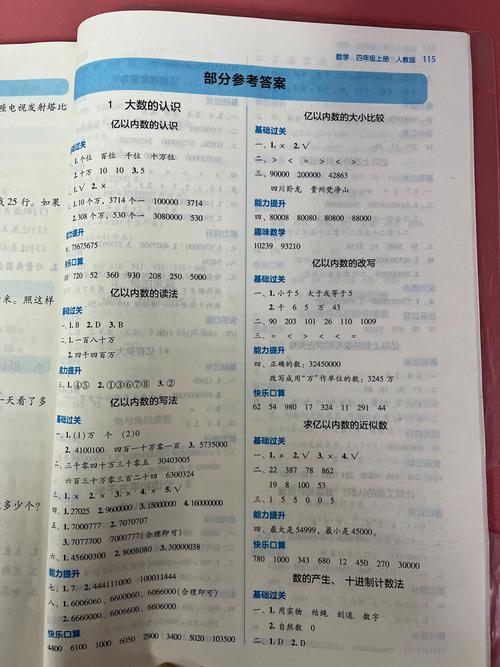 数学 四年级上册 人教版 115
部分参考答案
1 大数的认识
亿以内数的认识
基础过关
一、1.个位 百位 千位 十万位
2.十万 10 10 3.5
二、1.√ 2.×
三、1.10个万，3714个一 100000 3714
2.308个万，530个一 3080000 530
能力提升
四、75675675
快乐口算
720 52 360 930 208 250 5000
亿以内数的读法
基础过关
一、1.B 2.D 3.B
二、1.一百八十万
2.四千四百万
能力提升
三、1.④⑤ 2.①③⑥⑦⑧ 3.②
亿以内数的写法
基础过关
一、1.(1)万 个 (2)0
2.4100100 四百一十万零一百 3.5735000
二、三千零四十万三千零五 30403005
六百三十万零三百二十四 6300324
三、1.× 2.× 3.× 4.× 5.√
四、1.27025 2.9600000 3.15000000 4.16000000
五、1.7000777 2.7070707
3.7077700 7000777(合理即可)
六、1.45600300 2.8008080 3.30000038
能力提升
七、1.7 2.444111000 100011444
八、1.6006060 6006006 6060006(合理即可)
2.6660000 6606000 6006600
快乐口算
4400 6100 1000 6050 2900 3400 5020 103500
亿以内数的大小比较
基础过关
一、1.× 2.√
二、> < = > < >
三、90000 200002 42863
四川卧龙 贵州梵净山
能力提升
四、80008 80080 80800 88000
趣味数学
10239 93210
亿以内数的改写
基础过关
一、1.小于5 大于或等于5
2.千 6 5 万 43
二、90 203 101 26 110 109
三、= < > < < >
能力提升
四、正确的数：32450000
改写成用“万”作单位的数：3245万
快乐口算
62 54 980 17 324 11 291 44
求亿以内数的近似数
基础过关
一、1.× 2.√ 3.× 4.√
二、22 387 78 862
19 8 100 530
三、1 5 5 0 0 5
能力提升
四、最大是54999，最小是45000。
快乐口算
780 1000 343 680 12 450 270 3300
数的产生、十进制计数法
基础过关
一、1.用实物 结绳 刻道 数字
2.自然数 0
二、1.D 2.D